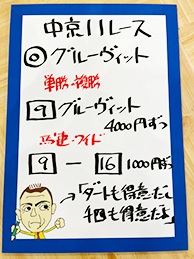 中京11レース
◎グルーヴィット
単勝・複勝
9 グルーヴィット
4000円ずつ
馬連・ワイド
9 − 16 1000円ずつ
→「ダートも得意だし
千四も得意だよ」